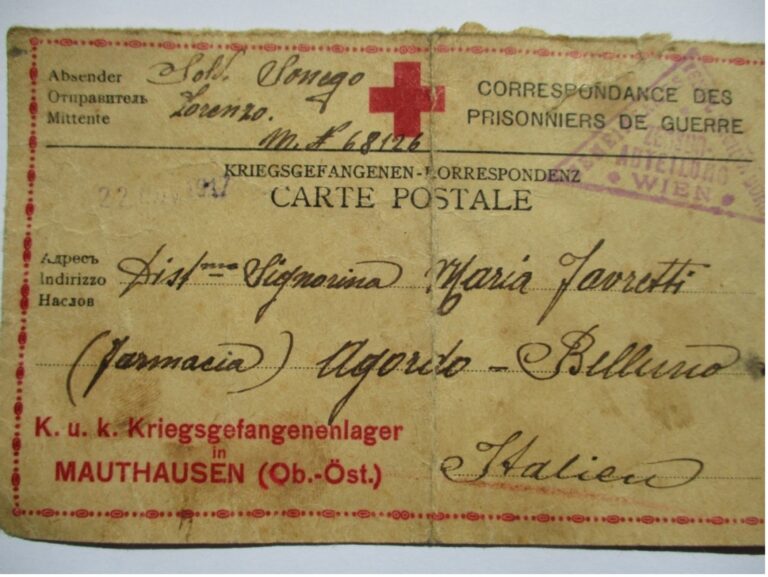 Absender
Отправитель
Mittente
Sold. Sonego
Lorenzo.
M. N 68126
CORRESPONDANCE DES
PRISONNIERS DE GUERRE
ABTEILUNG
WIEN
KRIEGSGEFANGENEN-KORRESPONDENZ
CARTE POSTALE
22 1917
Адресъ
Indirizzo
Наслов
Dist.ma Signorina Maria Favretti
(farmacia) Agordo - Belluno
Italien
K. u. k. Kriegsgefangenenlager
in
MAUTHAUSEN (Ob.-Öst.)